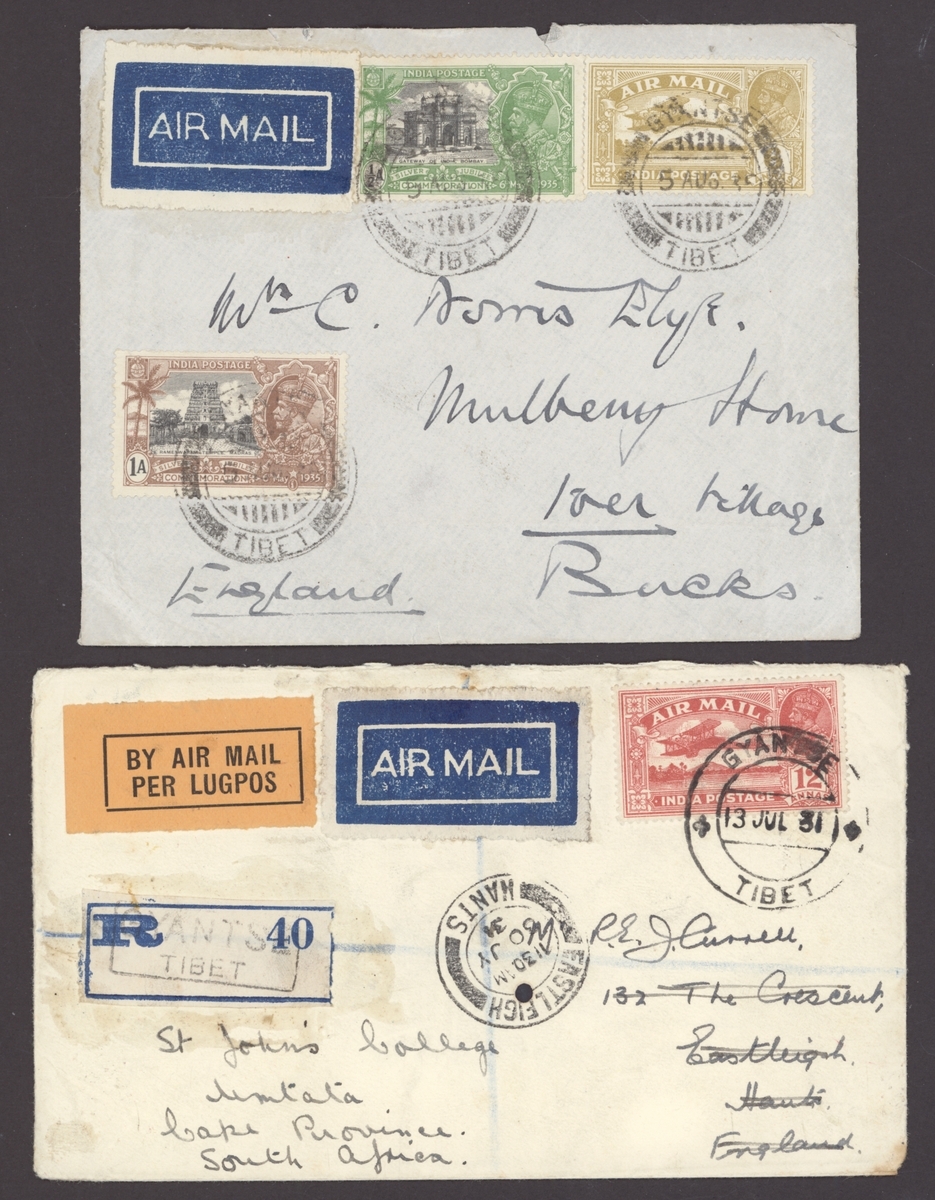 AIR MAIL
INDIA POSTAGE
GATEWAY OF INDIA, BOMBAY
SILVER JUBILEE
COMMEMORATION 6 May 1935
TIBET
AIR MAIL
INDIA POSTAGE
GYANTSE
5 AUG 35
TIBET
Mrs C. Norris Elye.
Mulberry House
Iver Village
Bucks.
England
INDIA POSTAGE
1A
SILVER JUBILEE
COMMEMORATION 6 May 1935
TIBET
BY AIR MAIL
PER LUGPOS
AIR MAIL
AIR MAIL
12
ANNAS
INDIA POSTAGE
GYANTSE
13 JUL 31
TIBET
R 40
GYANTSE
TIBET
EASTLEIGH
HANTS
1130 AM
JY
R.E.J. Currell,
132 The Crescent,
Eastleigh.
Hants.
England.
St John's College
Umtata
Cape Province.
South Africa.